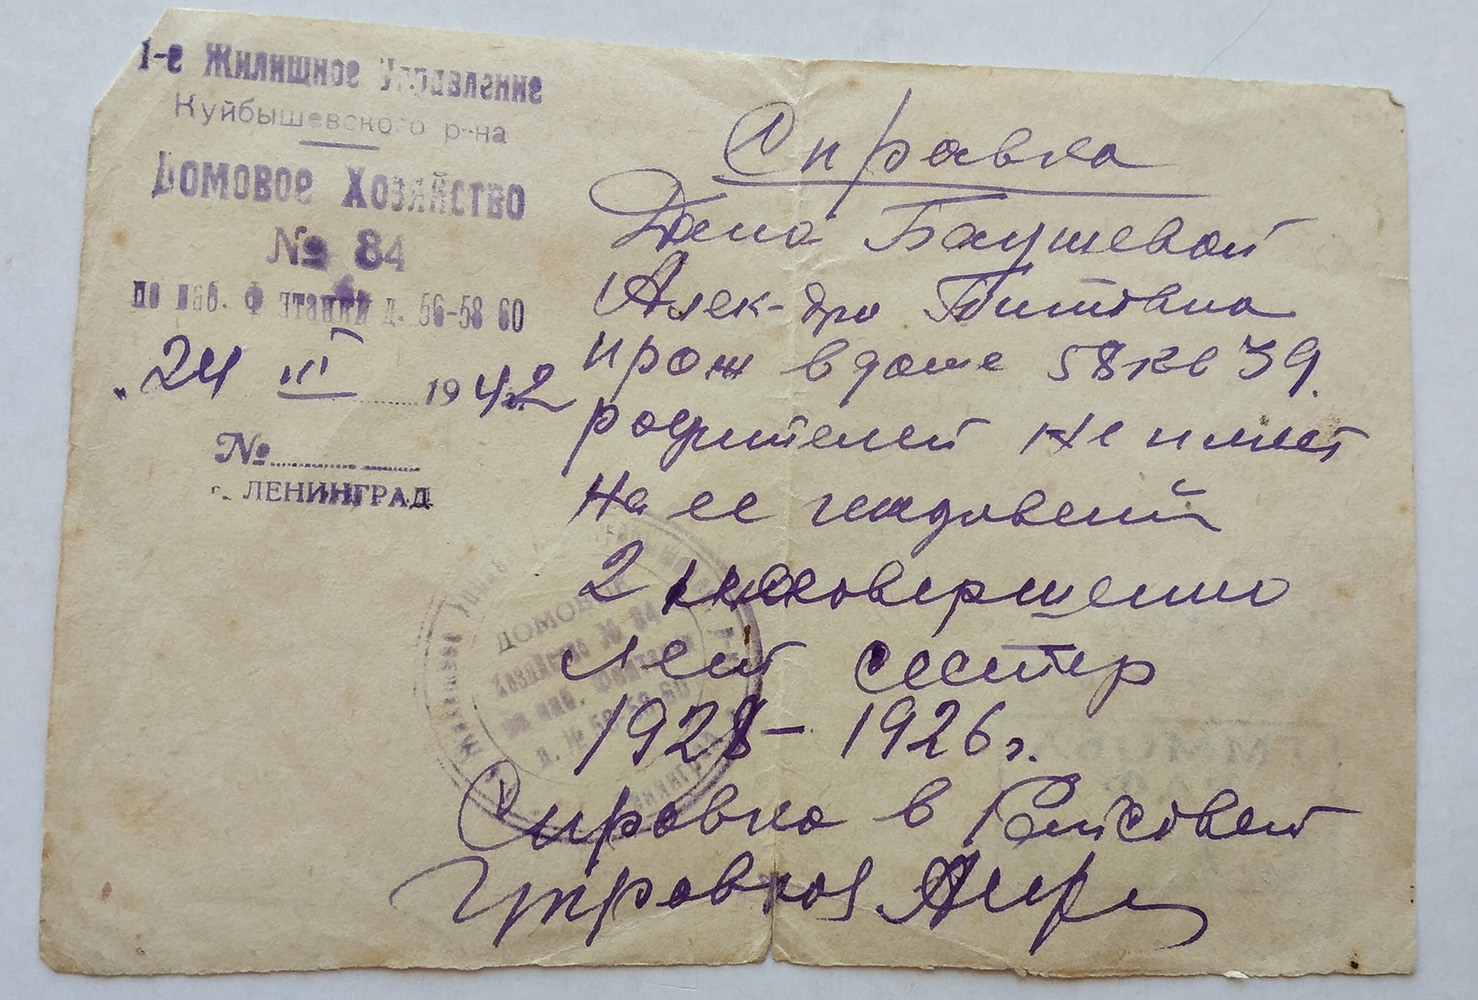 1-е Жилищное Управление
Куйбышевского р-на
Домовое Хозяйство
№ 84
по наб. Фонтанки д. 56-58 60
„24 III 1942
№
г. ЛЕНИНГРАД
Справка
Дана Баушевой
Алек-дра Титовна
прож в доме 58 кв 39.
родителей не имеет
На ее иждовений
2 несовершенно
лет сестер
1928 - 1926 г.
ДОМОВОЕ
хозяйство № 84
по наб. Фонтанки
д. № 56-58-60
Справка в Райсовет